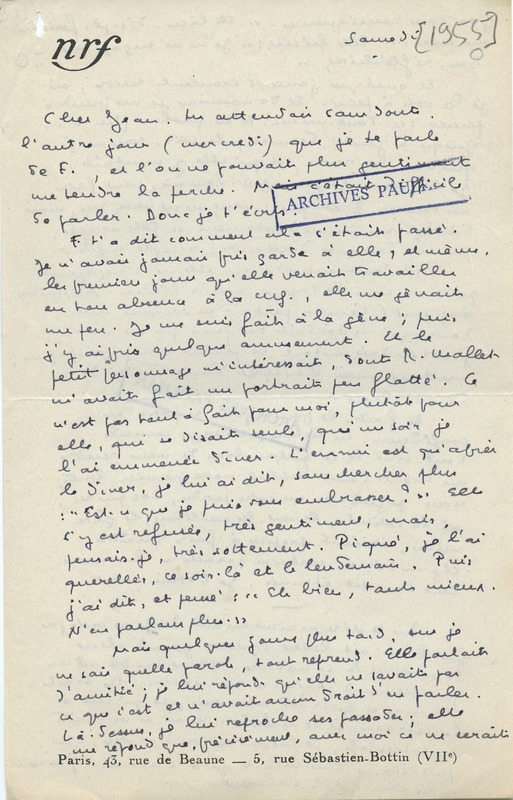 nrf
Samedi [1955]
Cher Jean. Tu attendais sans doute
l'autre jour (mercredi) que je te parle
de F., et l'on ne pouvait plus gentiment
me tendre la perche. Mais c'était difficile
de parler. Donc je t'écris.
ARCHIVES PAULHAN
F. t'a dit comment cela s'était passé.
Je n'avais jamais pris garde à elle, et même,
les premiers jours qu'elle venait travailler
en ton absence à la nrf., elle me gênait
un peu. Je me suis fait à la gêne ; puis
j'y ai pris quelque amusement. Et le
petit personnage m'intéressait, dont R. Mallet
m'avait fait un portrait peu flatté. Ce
n'est pas tout à fait pour moi, plutôt pour
elle, qui se disait seule, qu'un soir je
l'ai emmenée dîner. L'ennui est qu'après
le dîner, je lui ai dit, sans chercher plus
: "Est-ce que je puis vous embrasser ?" Elle
s'y est refusée, très gentiment, mais,
pensais-je, très sottement. Piqué, je l'ai
querellée, ce soir-là et le lendemain. Puis
j'ai dit, et pensé : "Eh bien, tant mieux.
N'en parlons plus."
Mais quelques jours plus tard, sur je
ne sais quelle parole, tout reprend. Elle parlait
d'amitié ; je lui réponds qu'elle ne savait pas
ce que c'est et n'avait aucun droit d'en parler.
Là-dessus, je lui reproche ses passades ; elle
me répond que, précisément, avec moi ce ne serait
Paris, 43, rue de Beaune — 5, rue Sébastien-Bottin (VIIe)